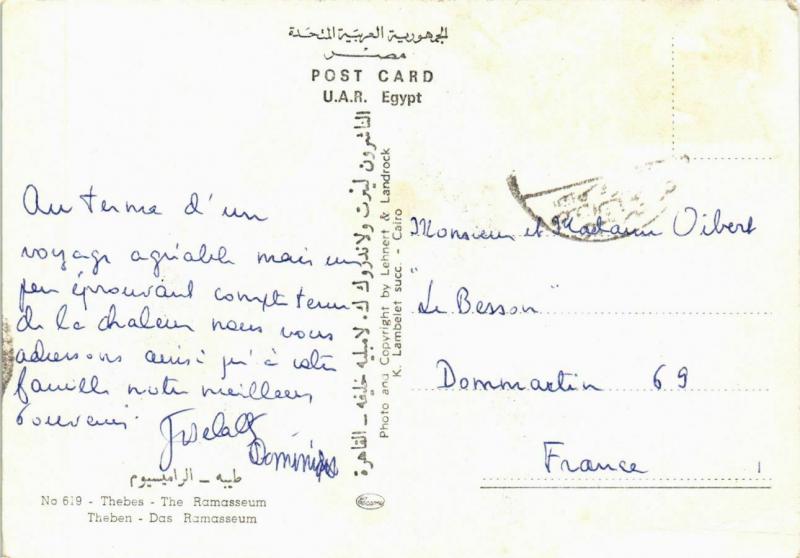 الجمهورية العربية المتحدة
مصر
POST CARD
U.A.R. Egypt
Au terme d'un
voyage agréable mais un
peu éprouvant compte tenu
de la chaleur nous vous
adressons ainsi qu'à votre
famille notre meilleur
souvenir.
Dominique
طيبه - الراميسيوم
No 619 - Thebes - The Ramasseum
Theben - Das Ramasseum
الناشرون لينرت ولاندروك ك. لامبليه خليفه - القاهرة
Photo and Copyright by Lehnert & Landrock
K. Lambelet succ. - Cairo
Monsieur et Madame Vibert
"Le Besson"
Dommartin 69
France
1